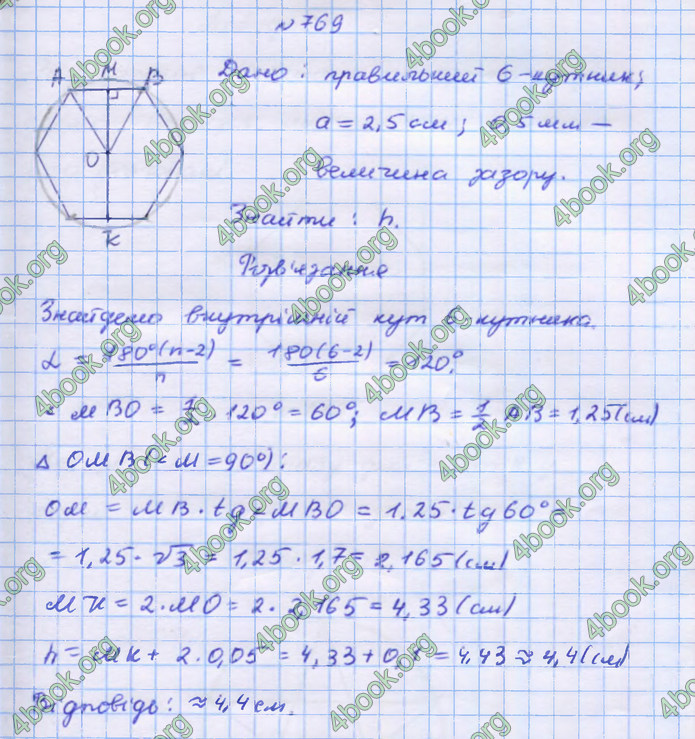 № 769
A M B
Дано: правильний 6-кутник;
a = 2,5 см; 0,5 мм —
O
величина зазору.
Знайти: h.
K
Розв'язання
Знайдемо внутрішній кут 6-кутника.
α = 180°(n-2)/n = 180(6-2)/6 = 120°.
∠ MBO = 120° = 60°; MB = 1/2 AB = 1,25 (см)
Δ OMB (∠M = 90°):
OM = MB · tg∠MBO = 1.25 · tg 60° =
= 1,25 · √3 = 1,25 · 1,7 = 2,165 (см)
MK = 2 · MO = 2 · 2,165 = 4,33 (см)
h = MK + 2 · 0,05 = 4,33 + 0,1 = 4,43 ≈ 4,4 (см)
Відповідь: ≈ 4,4 см.
4book.org